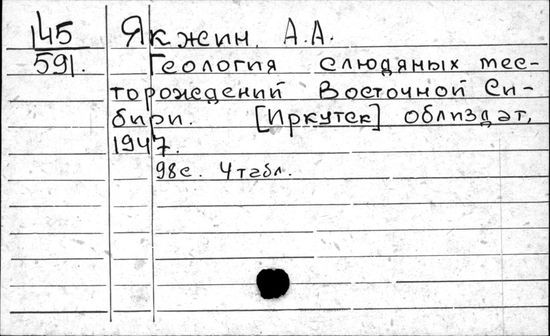 145 Якжин, А.А.
591. Геология слюдяных мес-
торождений Восточной Си-
бири. [Иркутск] облиздат,
1947.
98с. 4табл.